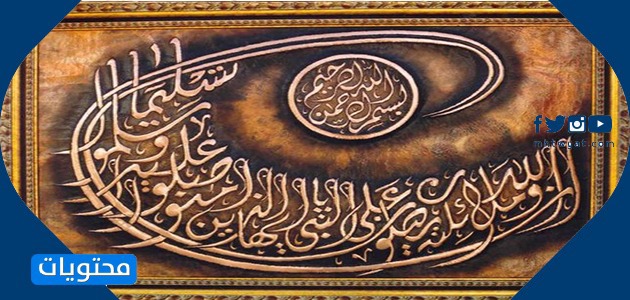 بسم الله الرحمن الرحيم
إن الله وملائكته يصلون على النبي يا أيها الذين آمنوا صلوا عليه وسلموا تسليما
mhtwyat.com
محتويات